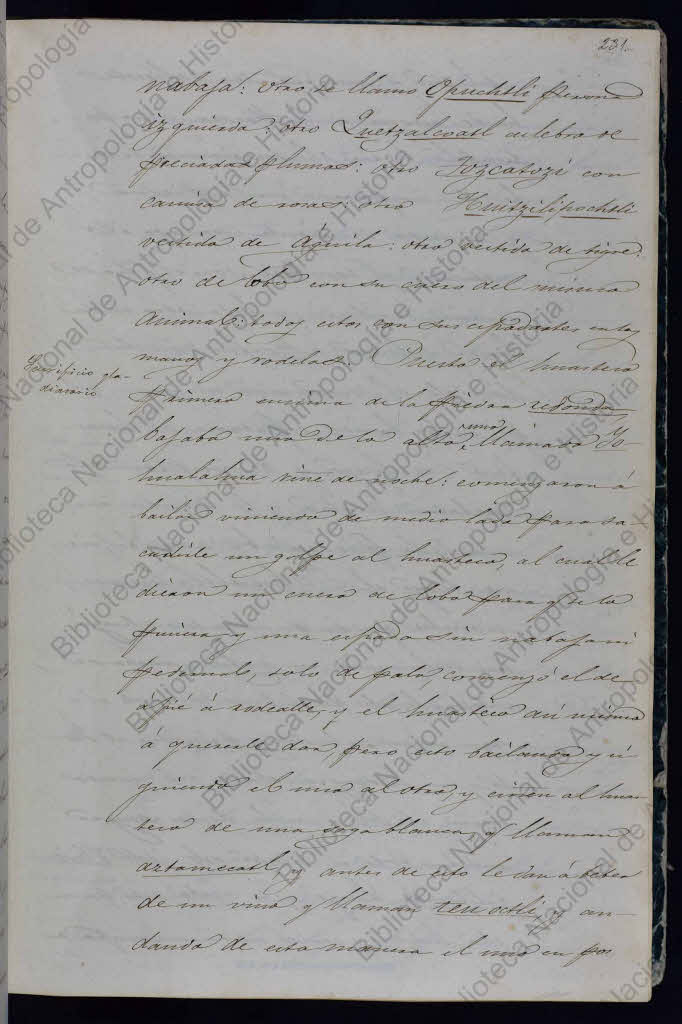 231.
nabaja: otro se llamó Opuchtli persona
izquierda: otro Quetzalcoatl culebra de
preciadas plumas: otro Tozcatozi con
camisa de rosas: otro Huitzilipochtli
vestido de Águila: otro vestido de tigre:
otro de lobo con su cuero del mismo
animal: todos estos con sus espadartes en las
manos y rodelas. Puesto el huasteco
Sacrificio gla-
diatorio
primero encima de la piedra redonda,
bajaba uno de lo alto, llamado Yo-
uno
hualahua vine de noche: comenzaron á
bailar viniendo de medio lado para sa-
cudirle un golpe al huasteco, al cual le
dieron un cuero de lobo para q se lo
pusiera y una espada sin nabaja ni
pedernal, solo de palo, comenzó el de
á pié á rodealle, y el huasteco así mismo
á quererle dar, pero esto bailando y si-
guiendo el uno al otro, y ciñen al huas-
teco de una soga blanca, q llaman
aztamecatl, y antes de esto le dan á beber
de un vino q llaman teu octli, y an-
dando de esta manera el uno en pos
Biblioteca Nacional de Antropología e Historia